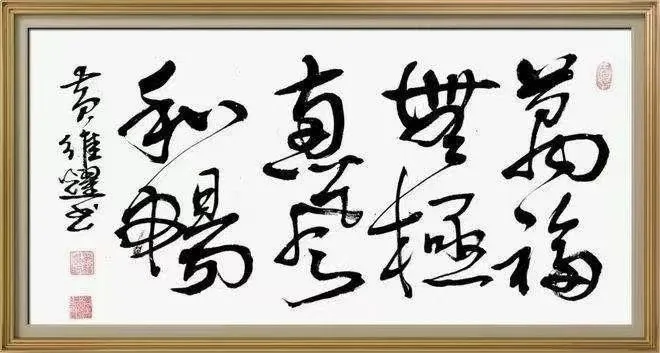 萬福
無極
惠風
和暢
黄維耀书